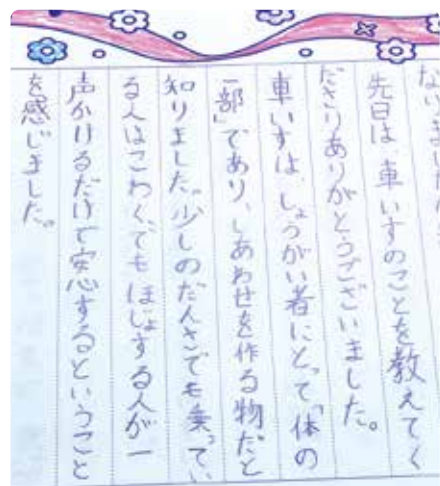 ないました。
先日は、車いすのことを教えてく
ださりありがとうございました。
車いすは、しょうがい者にとって「体の
一部」であり、しあわせを作る物だと
知りました。少しのだんさでも乗ってい
る人はこわく、でもほじょする人が一
声かけるだけで安心するということ
を感じました。